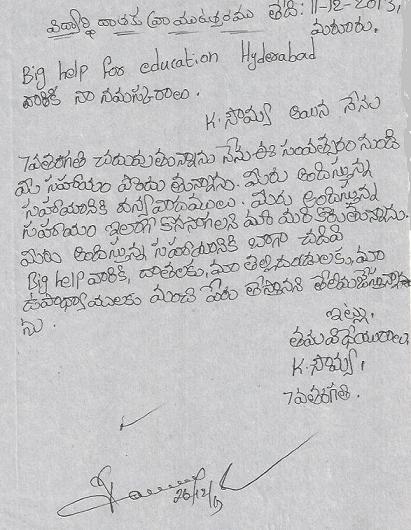 విద్యార్థి దాతకు వ్రాయు ఉత్తరము తేది: 11-12-2013,
మరూరు.
Big help for education Hyderabad
వారికి నా నమస్కారాలు.
K. సౌమ్య అయిన నేను
7వతరగతి చదువుతున్నాను నేను ఈ సంవత్సరం నుండి
మీ సహాయం పొందుతున్నాను. మీరు అందిస్తున్న
సహాయానికి ధన్యవాదములు. మీరు అందిస్తున్న
సహాయం ఇలాగే కొనసాగలని మరీ మరీ కోరుతున్నాను.
మీరు అందిస్తున్న సహాయానికి బాగా చదివి
Big help వారికి, దాతలకు, మా తల్లిదండ్రులకు, మా
ఉపాధ్యాయులకు మంచి పేరు తెస్తానని తెలియజేస్తున్నా
ను.
ఇట్లు,
తమ విధేయురాలు,
K. సౌమ్య,
7వతరగతి.
26/12/13